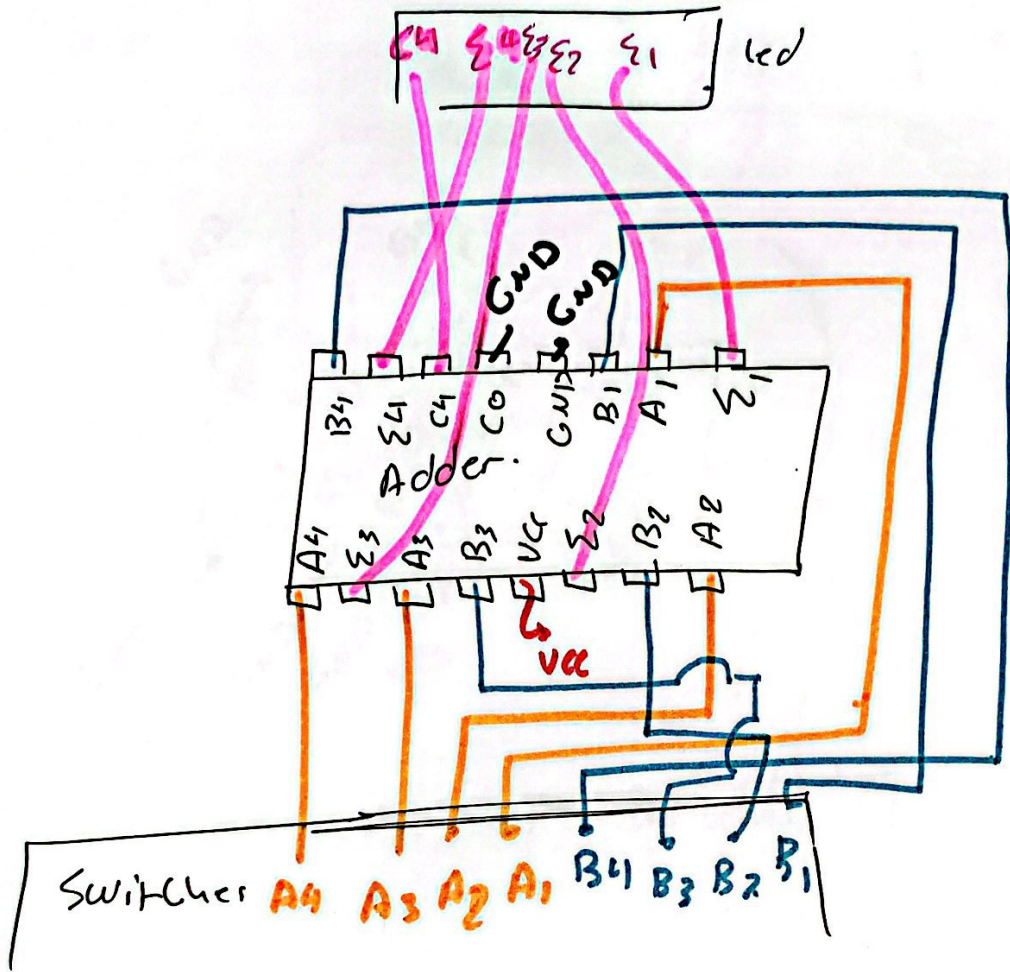 C4 Σ4 Σ3 Σ2 Σ1 led
GND GND
B4 Σ4 C4 C0 GND B1 A1 Σ1
Adder.
A4 Σ3 A3 B3 VCC Σ2 B2 A2
VCC
Switches A4 A3 A2 A1 B4 B3 B2 B1